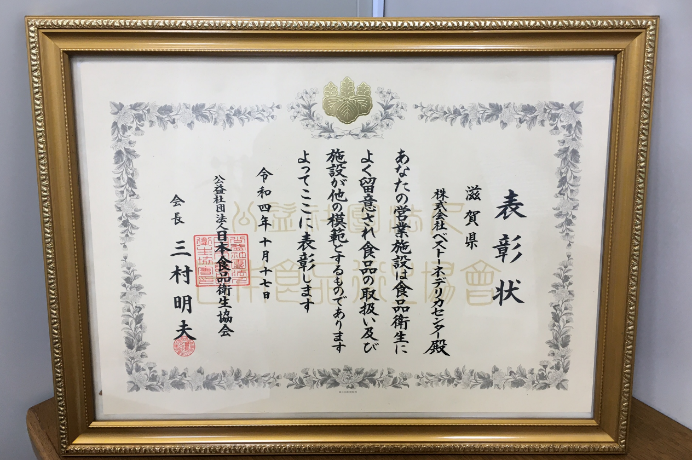 表彰状
滋賀県
株式会社ベストーネデリカセンター殿
あなたの営業施設は食品衛生に
よく留意され食品の取扱い及び
施設が他の模範とするものであります
よってここに表彰します
令和四年十月十七日
公益社団法人日本食品衛生協会
会長 三村明夫
公益社団法人
日本食品衛生協會